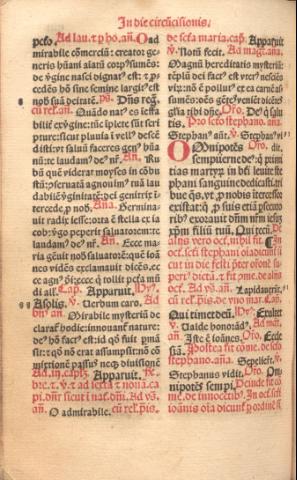 In die circũcisionis.
p̃cẽso. Ad lau. t ꝑ ho. añ. O ad
mirabile cõmerciũ: creator ge-
neris hũani aĩatũ corpꝰ sumẽs:
de v̓gine nasci dignatꝰ est: t p̃-
cedẽs hõ sine semine largitꝰ est
nob̃ suã deitatẽ. pš. Dñs reg̃.
cũ rel.añ. Quãdo natꝰ es ineffa
bilit̓ ex v̓gine: tũc ĩplete sũt scri
pture: sicut pluuia ĩ vell̓ descẽ
disti: vt saluũ faceres genꝰ hũa
nũ: te laudamꝰ deꝰ nr̃. An. Ru-
bũ quẽ viderat moyses in cõbu
stũ: cõseruatã agnouimꝰ tuã lau
dabilẽ v̓ginitatẽ: dei genitrix ĩ-
tercede ꝓ nob̃. Ana. Germina-
uit radix iesse: orta ẽ stella ex ia
cob: v̓go peperit saluatorem: te
laudamꝰ deꝰ nr̃. An. Ecce ma-
ria genuit nob̃ saluatorẽ: quẽ ioã
nes vidẽs exclamauit dicẽs. ec
ce agnꝰ
di all̓. Cap. Apparuit.
Asolis. v̓. Verbum caro. Ad
bñ. añ. Mirabile mysteriũ de
claraf̓ hodie: innouanf̓ nature:
deꝰ hõ factꝰ est: id qđ fuit ꝑmã
sit: t qđ nõ erat assumpsit: nõ cõ
mixtionẽ passus neqȝ diuisionẽ
Ad. in. cap. Apparuit.
bre. t. v̓. t ad iexta t nona. ca
pi. dñi sicut i nat. dñi. Ad v̓a.
añ. O admirabile. cũ rel. p̃is.
de scta maria. cap̃. Apparuit
v̓. Notũ fecit. Ad mag. ana.
Magnũ hereditatis mysteriũ:
tẽplũ dei factꝰ est vterꝰ nesciẽs
virũ: nõ ẽ pollutꝰ ex ea carnẽ as
sumẽs: oẽs gẽtes veniẽt dicẽtes
gl̃a tibi dñe. Oro. Deꝰ q̃ salu
tis. Pro scto stephano. ana.
Stephanꝰ aũt. v̓. Stephani vi
Oro.
OMnipotẽs
sempiterne deꝰ: q̃ primi
tias martyrũ in bt̃i leuite ste
phani sanguine dedicasti: tri
bue q̃s. vt ꝓ nobis intercessor
existat: q̃ ꝓ suis etiã psecuto
ribꝰ exorauit dñm nr̃m iesu
xp̃m filiũ tuũ. Qui tecũ. Ps
alm̃s vero oct. nihil fit. In
oct. scti stephani oia dicunf̓ si
cut in die festi p̃ter offm̃ sem
per dicta. t fit me. de alijs
oct. Ad v̓a. añ. Lapidauerũt.
cũ rel. p̃is. de vno mar. Cap̃.
Qui timet deũ. Exultet
v̓. Valde honorãdꝰ. Ad m̃.
añ. Iste ẽ ioãnes. Oro. Eccl̃e
siã. Postea fit cõme. de scto
stephano. ana. Sepelierũt. v̓.
Stephanus vidit. Oro. Om
nipotẽs sempi. Deinde fit cõ
me. de innocẽtibꝰ. In oct. scti
ioãnis oia dicunf̓ ꝑ ordinẽ si